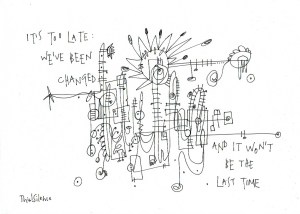 IT'S TOO LATE:
WE'VE BEEN
CHANGED
AND IT WON'T
BE THE
LAST TIME